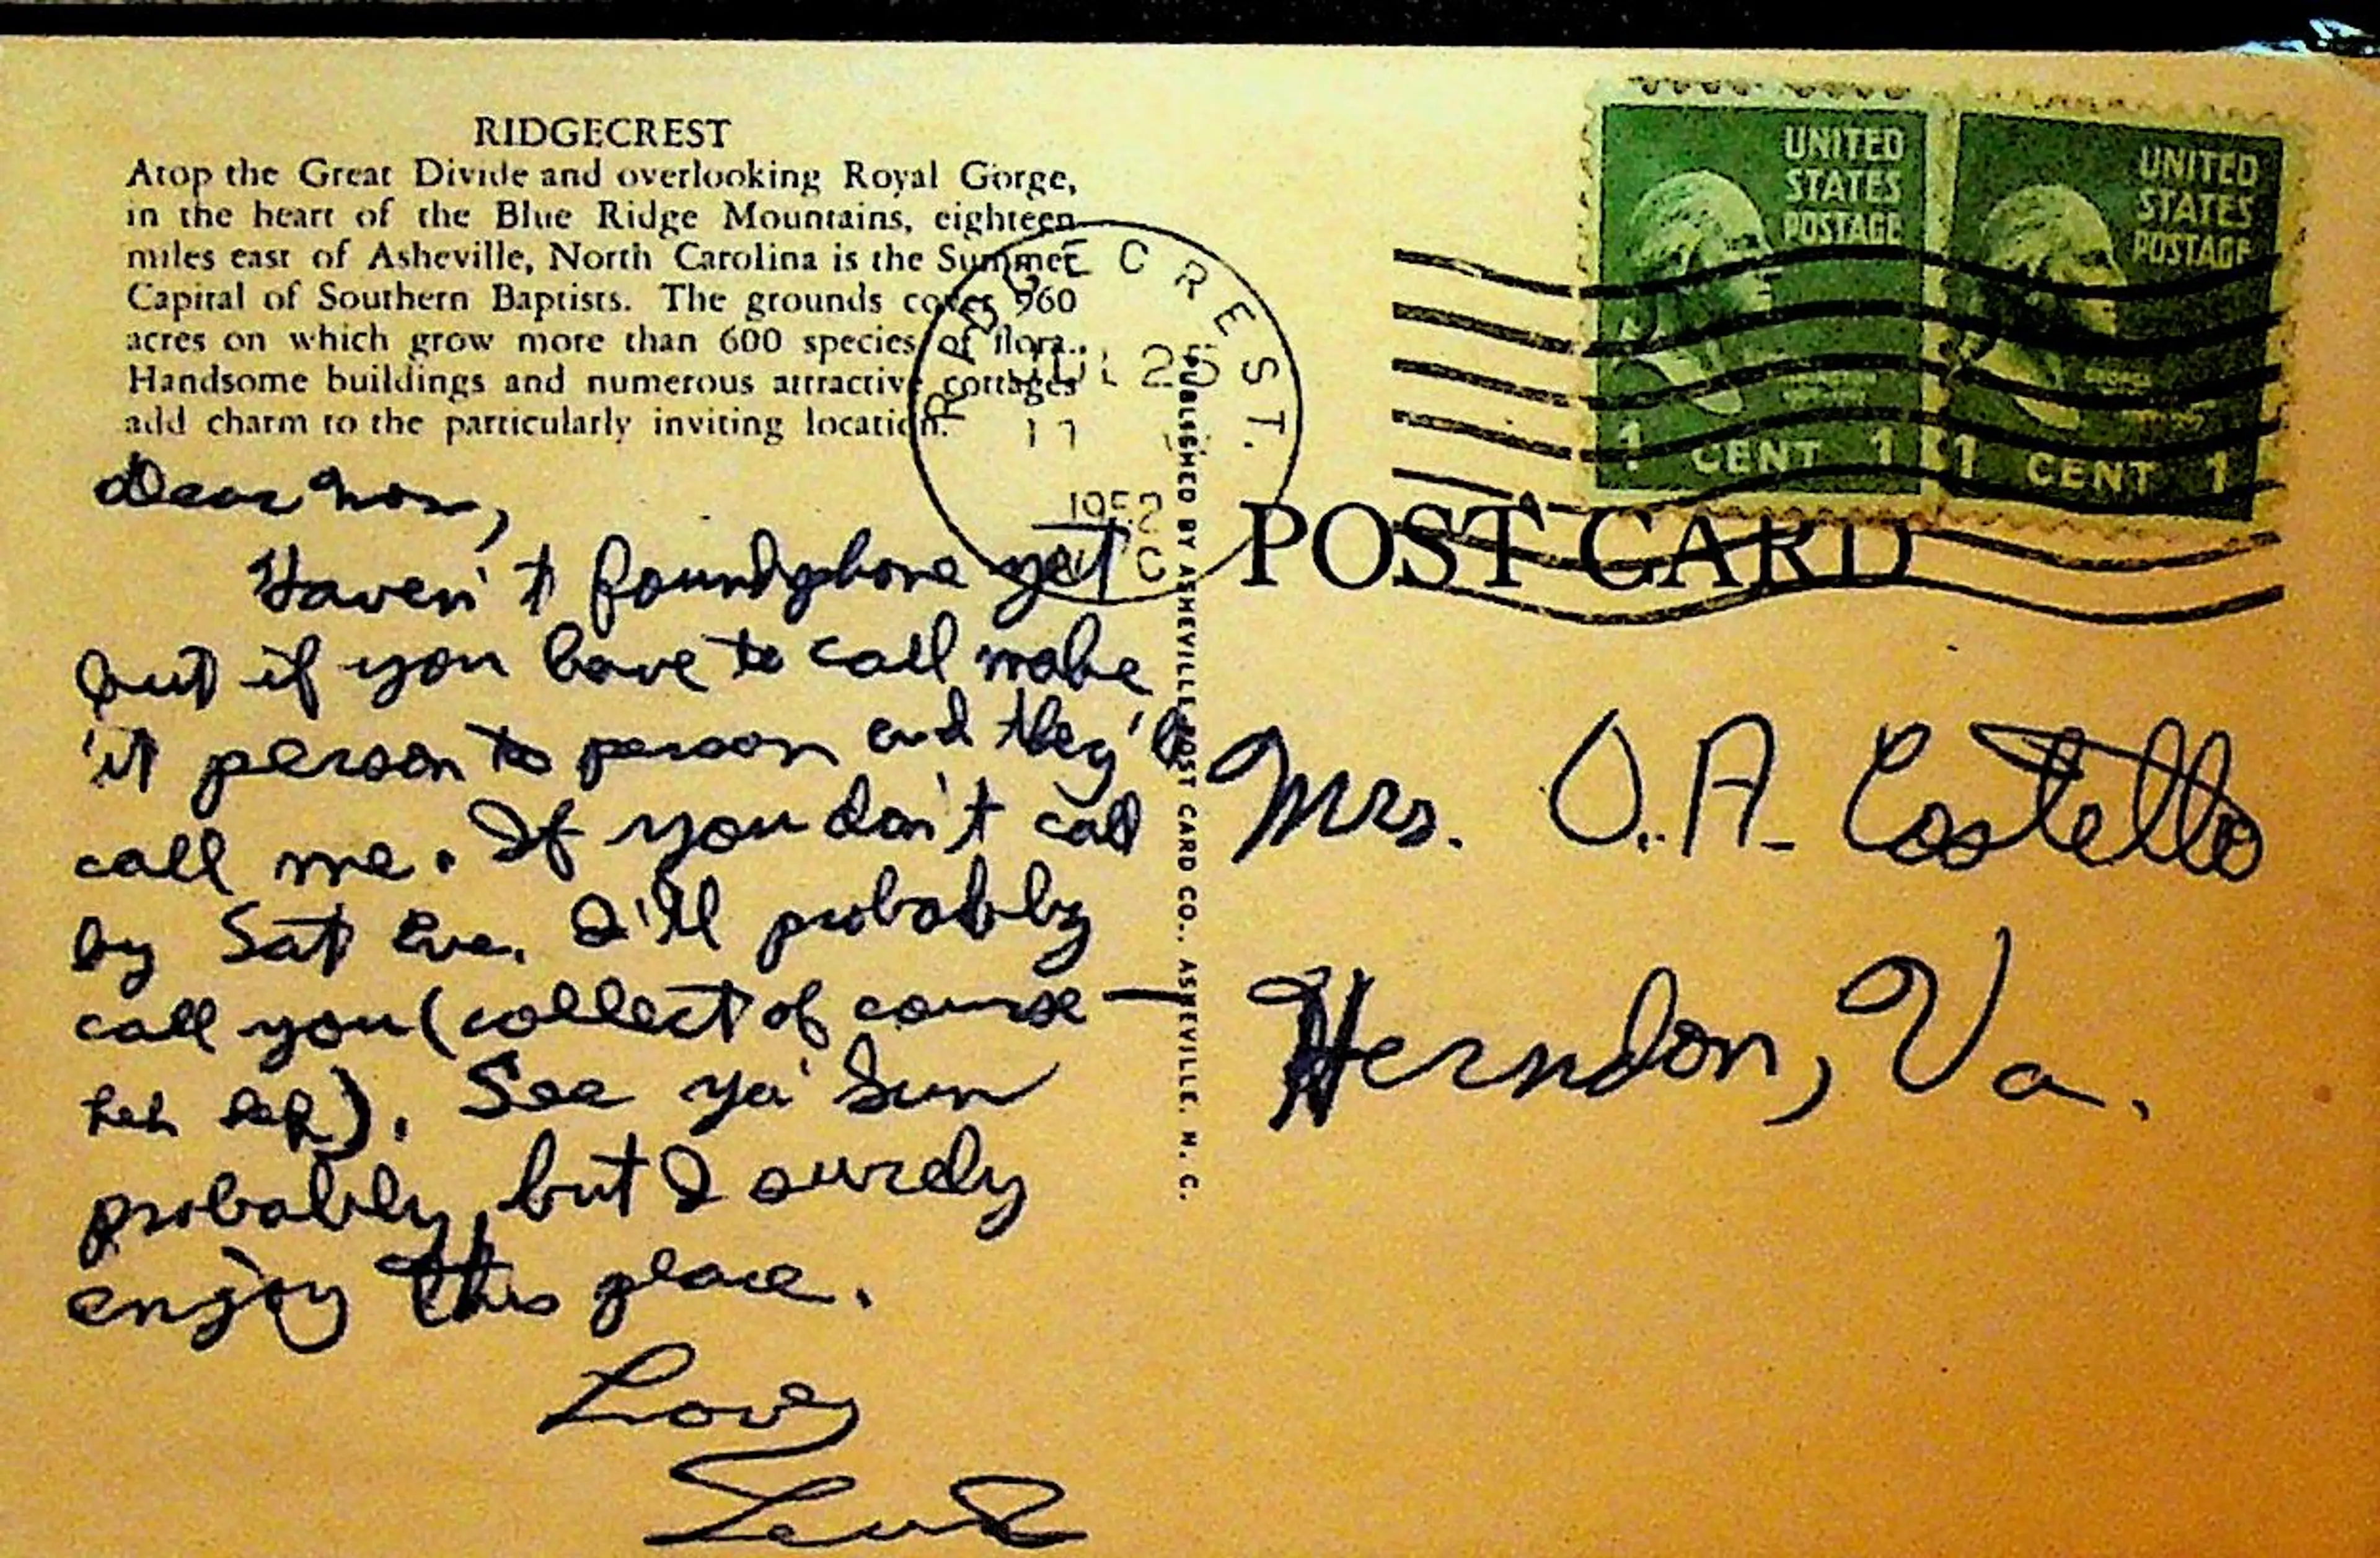 RIDGECREST
Atop the Great Divide and overlooking Royal Gorge,
in the heart of the Blue Ridge Mountains, eighteen
miles east of Asheville, North Carolina is the Summer
Capital of Southern Baptists. The grounds cover 960
acres on which grow more than 600 species of flora.
Handsome buildings and numerous attractive cottages
add charm to the particularly inviting location.
RIDGECREST.
JUL 25
1952
N C
UNITED
STATES
POSTAGE
1 CENT 1
UNITED
STATES
POSTAGE
1 CENT 1
POST CARD
PUBLISHED BY ASHEVILLE POST CARD CO., ASHEVILLE, N. C.
Dear Mom,
Haven't found phone yet
but if you have to call make
it person to person and they'll
call me. If you don't call
by Sat Eve. I'll probably
call you (collect of course —
heh heh). See ya' Sun
probably, but I surely
enjoy this place.
Love,
Mrs. O. A. Costello
Herndon, Va.